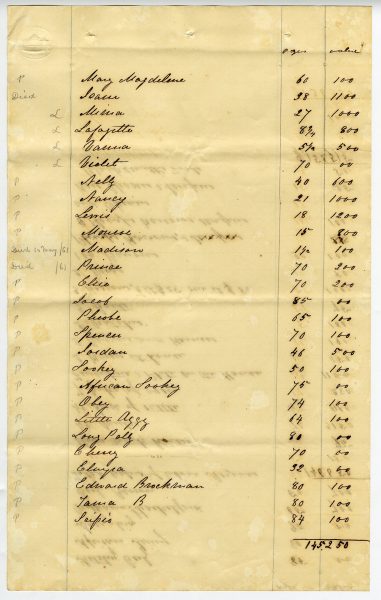 ages value
P Mary Magdelene 60 100
Died Isaac 38 1100
L Mima 27 1000
L Lafayette 8 3/4 800
L Vanna 500
L Violet 70 00
P Nelly 40 600
P Nancy 21 1000
P Lewis 18 1200
P Monroe 15 800
Died in May /61 Madison 1 1/2 100
Died /61 Prince 70 200
P Elsie 70 200
P Jacob 85 00
P Phebe 65 100
P Spencer 70 100
P Jordan 46 500
P Sookey 50 100
P African Sookey 75 00
P Obey 74 100
P Little Aggy 64 100
P Long Polly 80 00
P Cherry 70 00
P 32
P Edward Brockman 80 100
P Tama B 80 100
P Scipio 84 100
145.2 50